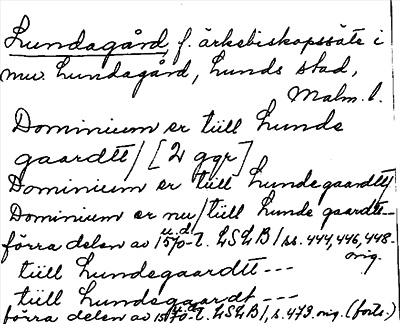 Lundagård, f. ärkebiskopssäte i
nuv. Lundagård, Lunds stad,
Malm. l.
Dominium er tiill Lunde
gaardtt/ [2 ggr]
Dominium er tiill Lundegaardtt/
Dominium er nu/tiill Lunde gaardtt--
förra delen av 1570-t. LSLB/ ss. 444, 446, 448-
orig.
tiill Lundegaardtt---
tiill Lundsgaardt---
förra delen av 1570-t. LSLB/, s. 473 orig. (forts.)